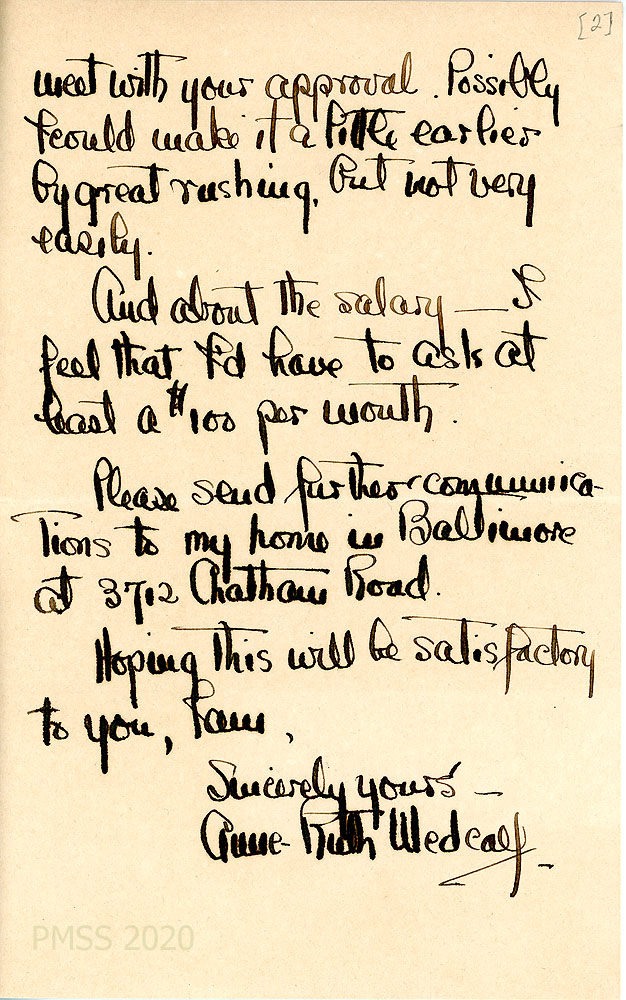 [2]
meet with your approval. Possibly
I could make it a little earlier
by great rushing, but not very
easily.
And about the salary — I
feel that I'd have to ask at
least a $100 per month.
Please send further communica-
tions to my home in Baltimore
at 3712 Chatham Road.
Hoping this will be satisfactory
to you, I am,
Sincerely yours —
Anne-Ruth Medcalf —
PMSS 2020